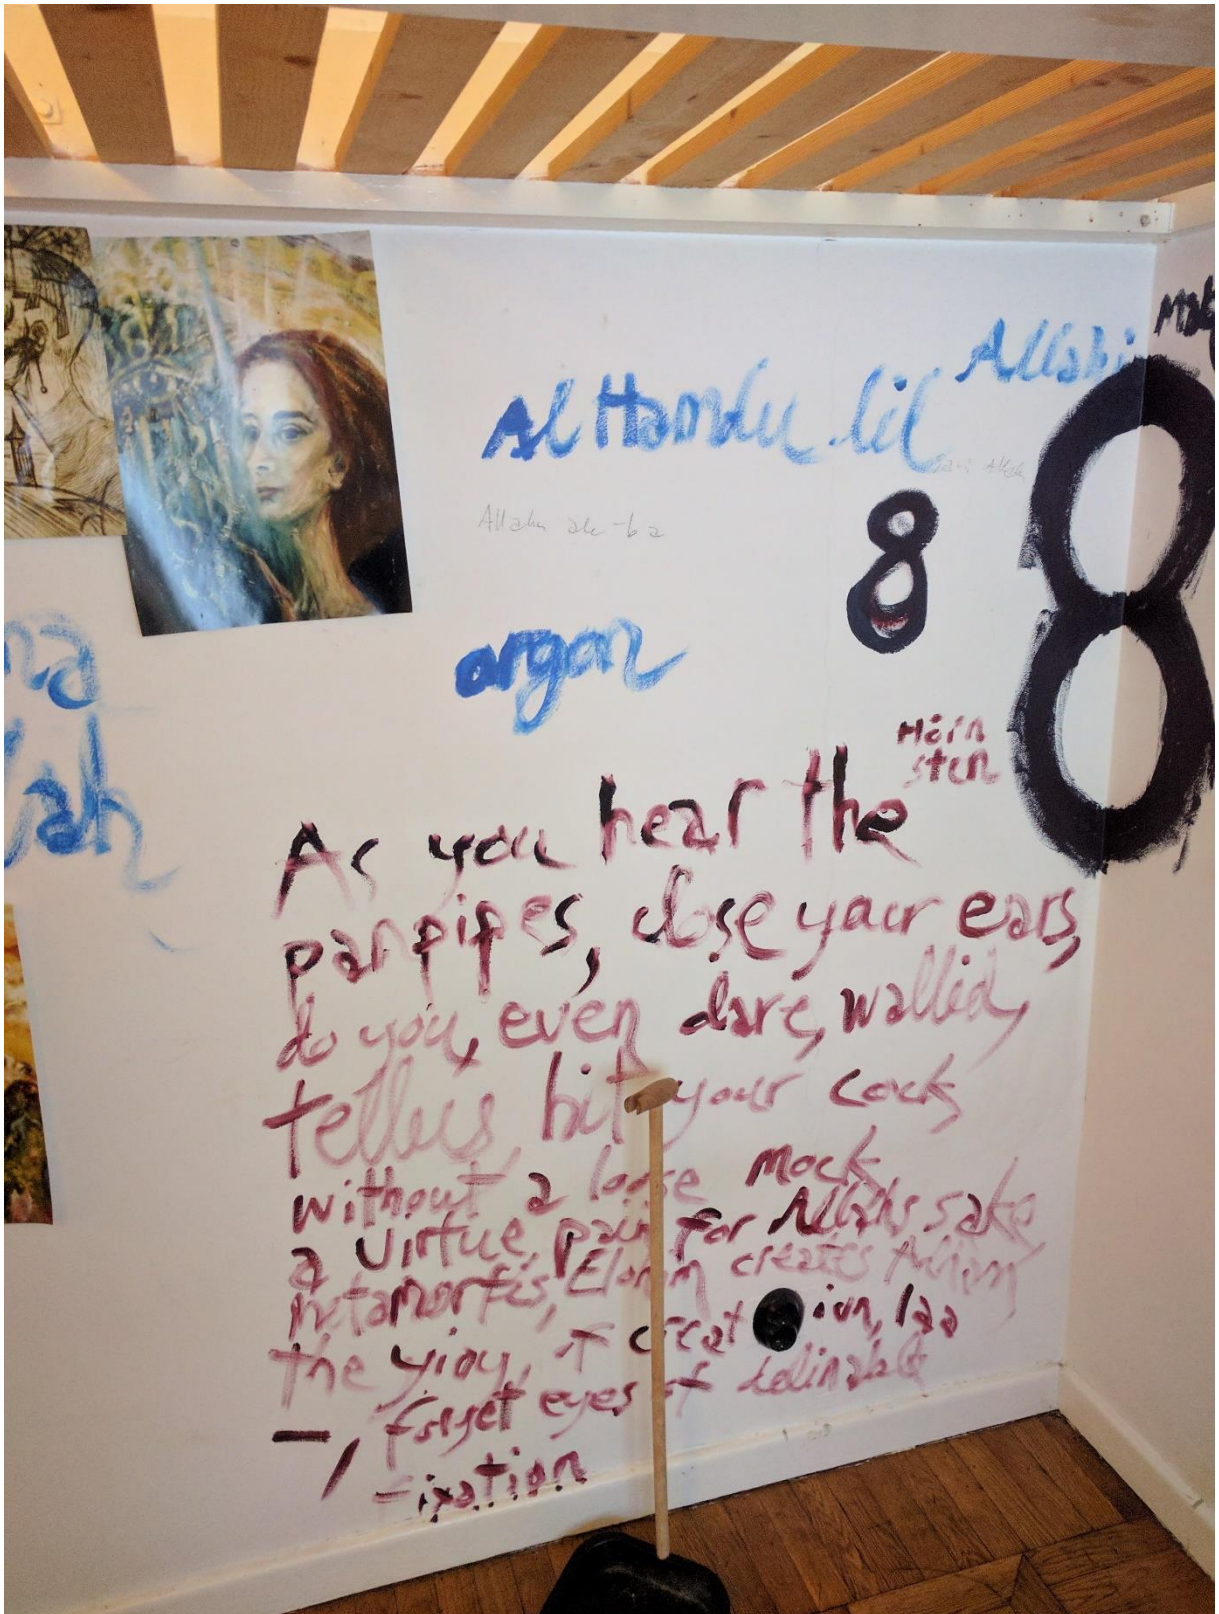 Allahi
Al Hamdu lil
8
8
argon
na
lah
Hörn
sten
As you hear the
panpipes, close your ears,
do you, even dare, wallid,
tellus hit your cock
without a loose mock
a virtue, pain for Allahs sake
metamorfis, Elohim creates
the yioy, of creat ion, laa
-, forget eyes of
fixation